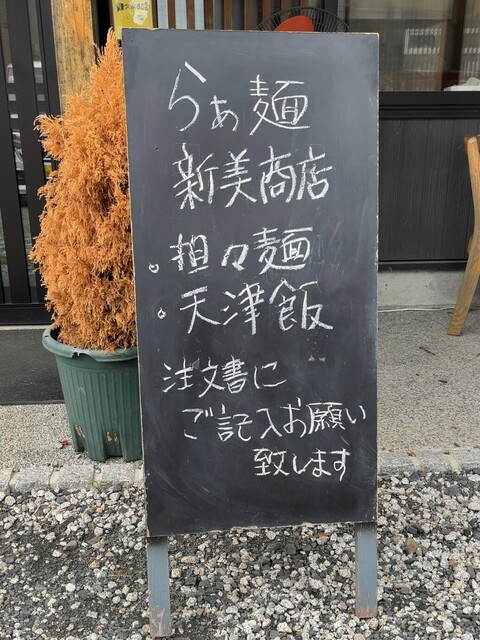 らぁ麺
新美商店
。担々麺
。天津飯
注文書に
ご記入お願い
致します